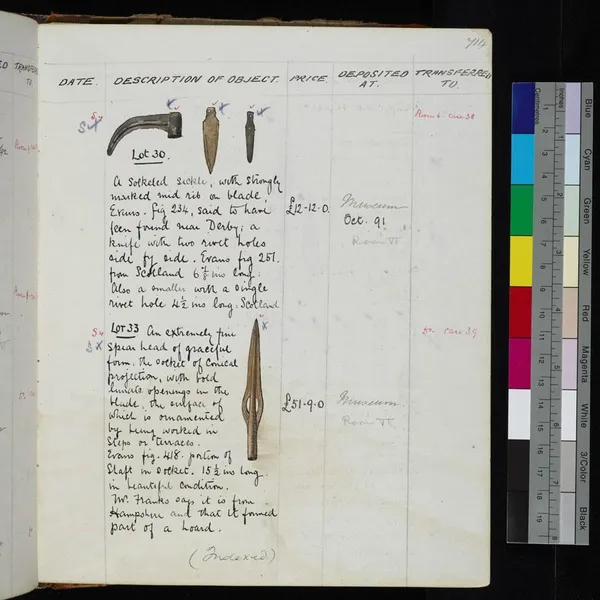 714
DATE. DESCRIPTION OF OBJECT. PRICE. DEPOSITED AT. TRANSFERRED TO.
Lot 30.
A Socketed Sickle, with strongly
marked mid rib on blade,
Evans. fig 234, said to have
been found near Derby; a
knife with two rivet holes
side by side. Evans fig 251.
from Scotland 6½ ins long.
Also a smaller with a single
rivet hole 4½ ins long. Scotland
£12-12-0.
Museum
Oct. 91
Room VI
Room 6. case 38
Lot 33 An extremely fine
Spear head of graceful
form. the socket of conical
projection, with bold
lunate openings in the
blade. the surface of
which is ornamented
by being worked in
steps or terraces.
Evans fig. 418. portion of
Shaft in socket. 15½ ins long.
in beautiful condition.
Mr. Franks says it is from
Hampshire and that it formed
part of a hoard.
£51-9-0
Museum.
Room VI
case 39
(Indexed)
Centimetres
Inches
Blue
Cyan
Green
Yellow
Red
Magenta
White
3/Color
Black